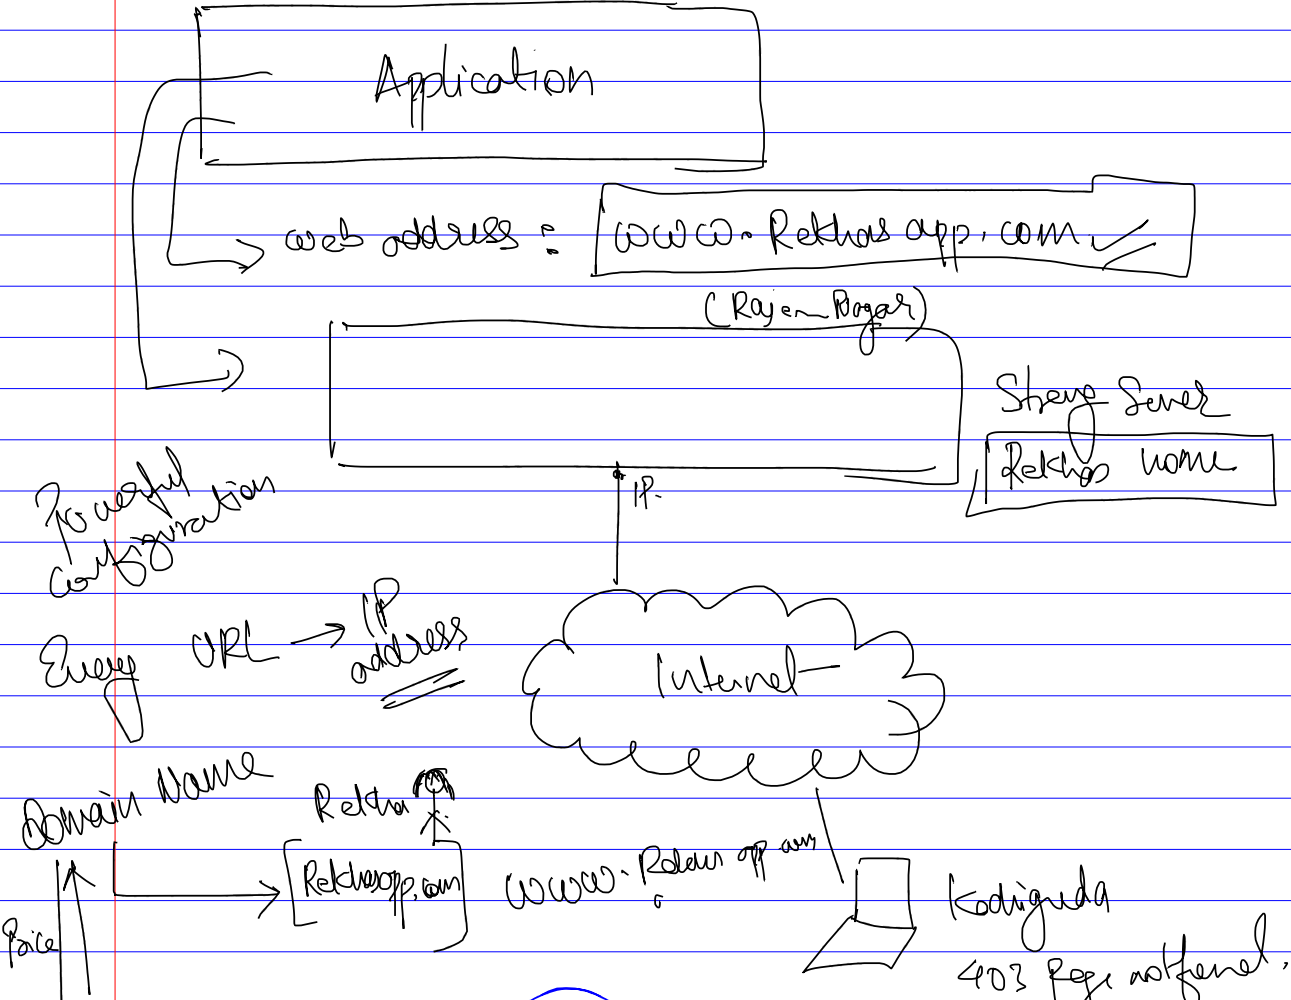 Application
web address : www.Rekhasapp.com
(Rajen Nagar)
Strong Server
Rekhas home
IP.
Powerful
configuration
Every URL → IP
address
Internet
Domain Name
Rekha
Rekhasapp.com
www.Rekhas app com
Price
Kodiguda
403 Page not found.